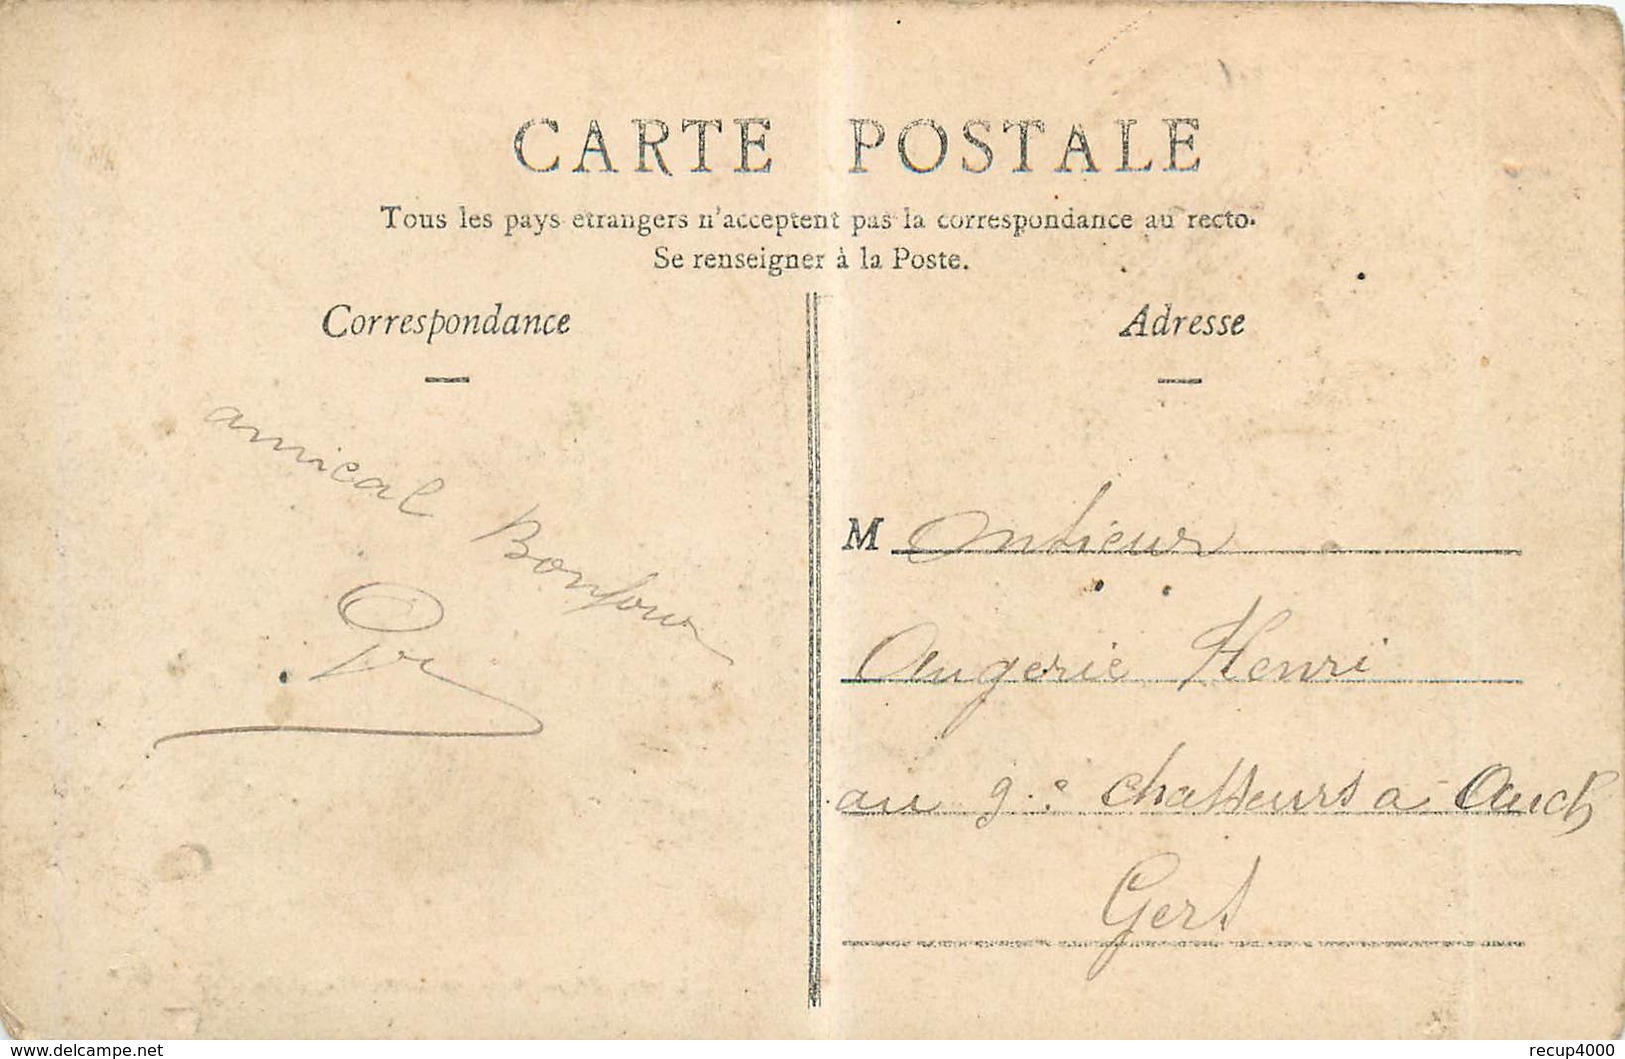 CARTE POSTALE
Tous les pays etrangers n'acceptent pas la correspondance au recto.
Se renseigner à la Poste.
Correspondance
Adresse
amical Bonjour
M onsieur
Augerie Henri
au 9e chasseurs a Auch
Gers
www.delcampe.net
recup4000